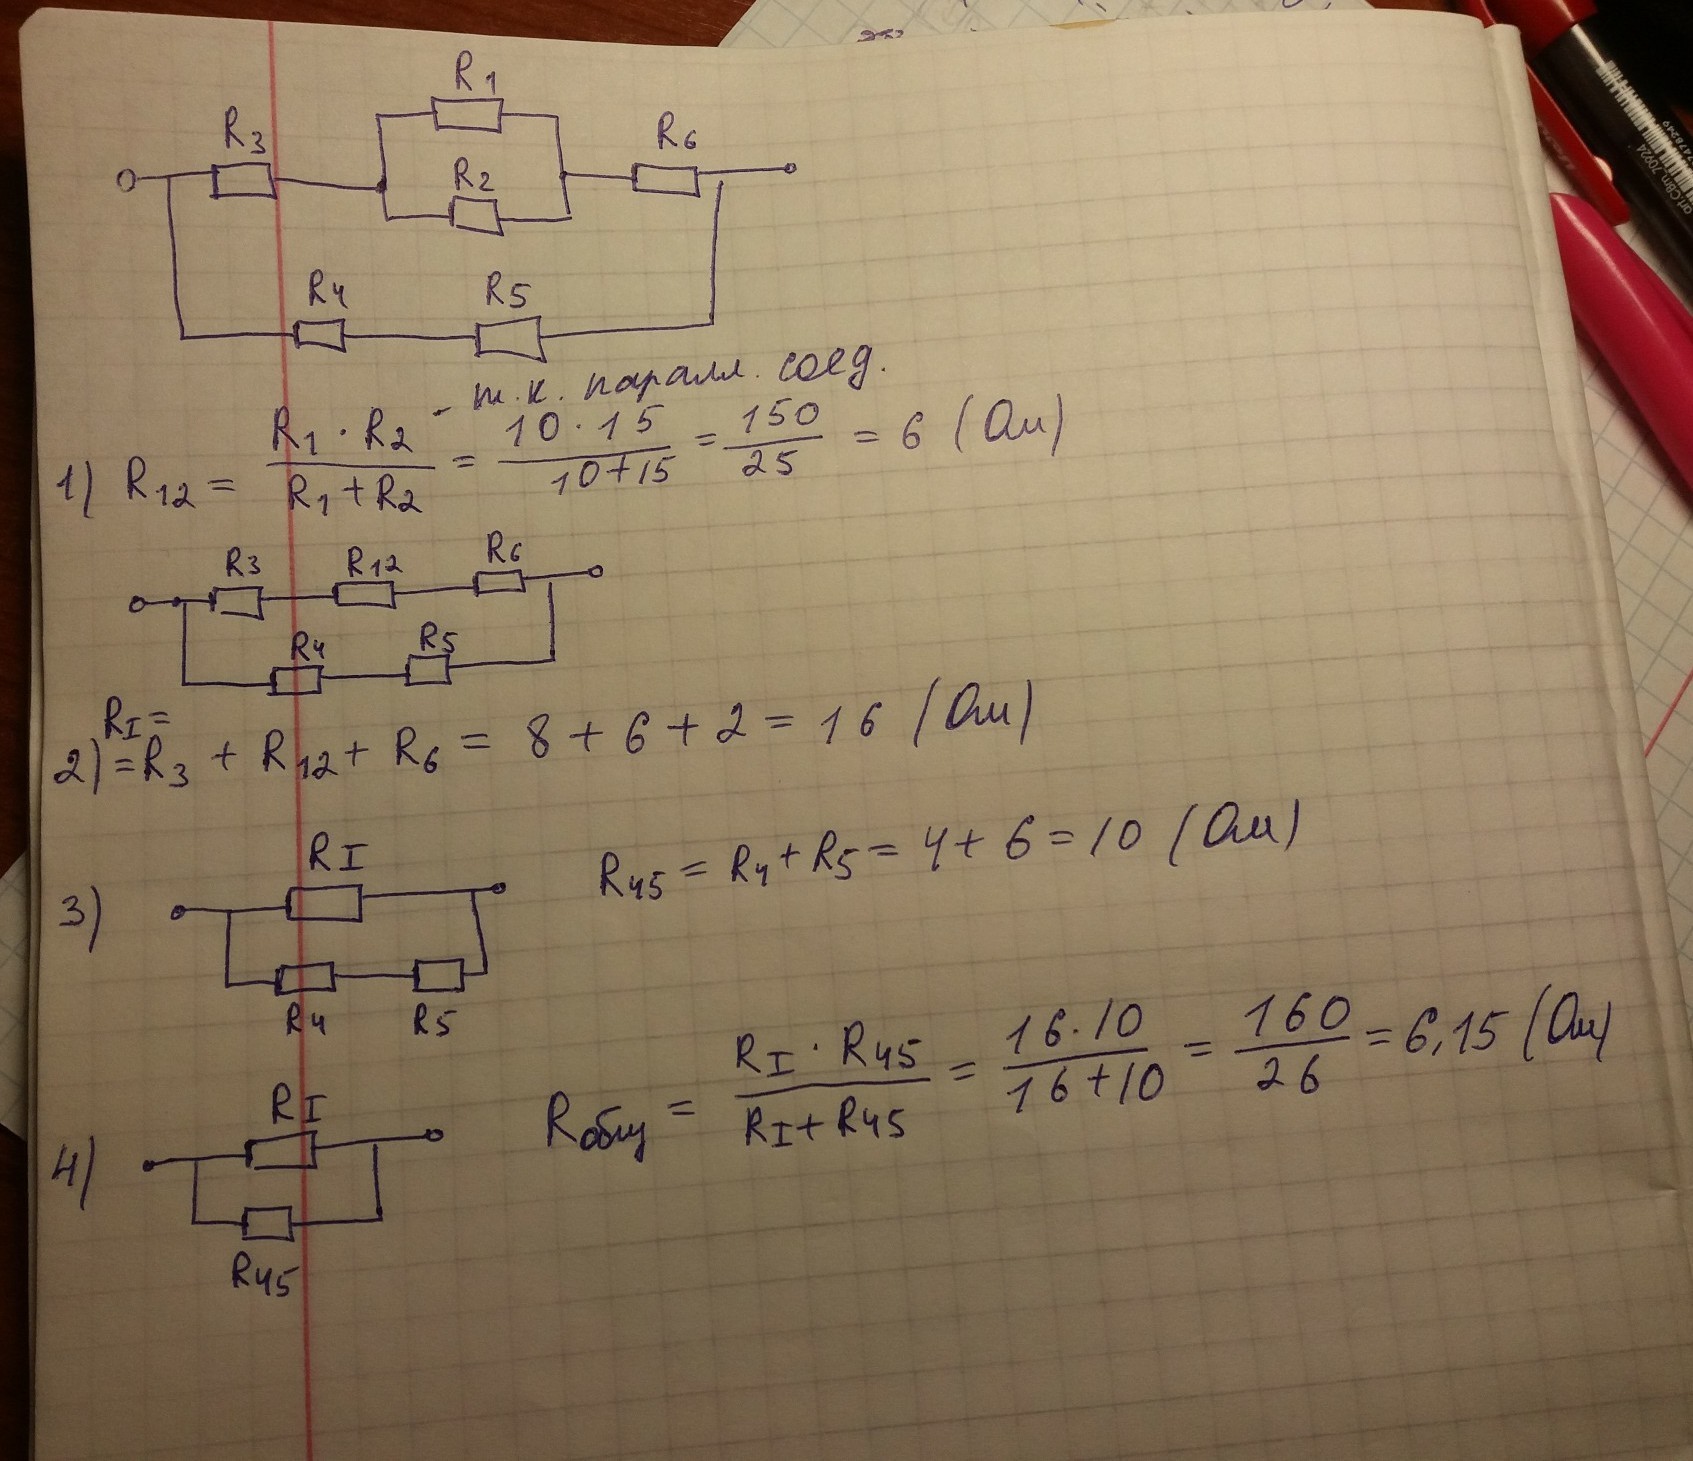 R1
R3
R2
R6
R4 R5
- т.к. паралл. соед.
1) R12 = R1 · R2 / R1 + R2 = 10 · 15 / 10 + 15 = 150 / 25 = 6 (Ом)
R3 R12 R6
R4 R5
RI =
2) = R3 + R12 + R6 = 8 + 6 + 2 = 16 (Ом)
RI
3) R45 = R4 + R5 = 4 + 6 = 10 (Ом)
R4 R5
RI
4) Rобщ = RI · R45 / RI + R45 = 16 · 10 / 16 + 10 = 160 / 26 = 6,15 (Ом)
R45